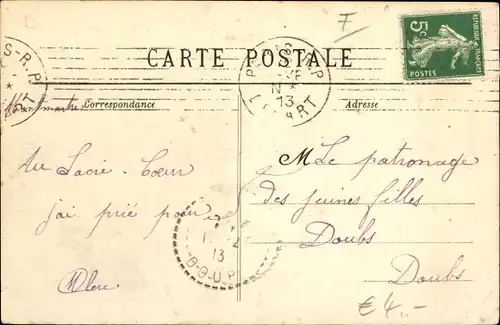 F
CARTE POSTALE
5c
POSTES
REPUBLIQUE FRANÇAISE
Montmartre Correspondance
Adresse
13
Au Sacré-Coeur
j'ai prié pour
M Le patronage
des jeunes filles
Doubs
Doubs
13
€ 4,-